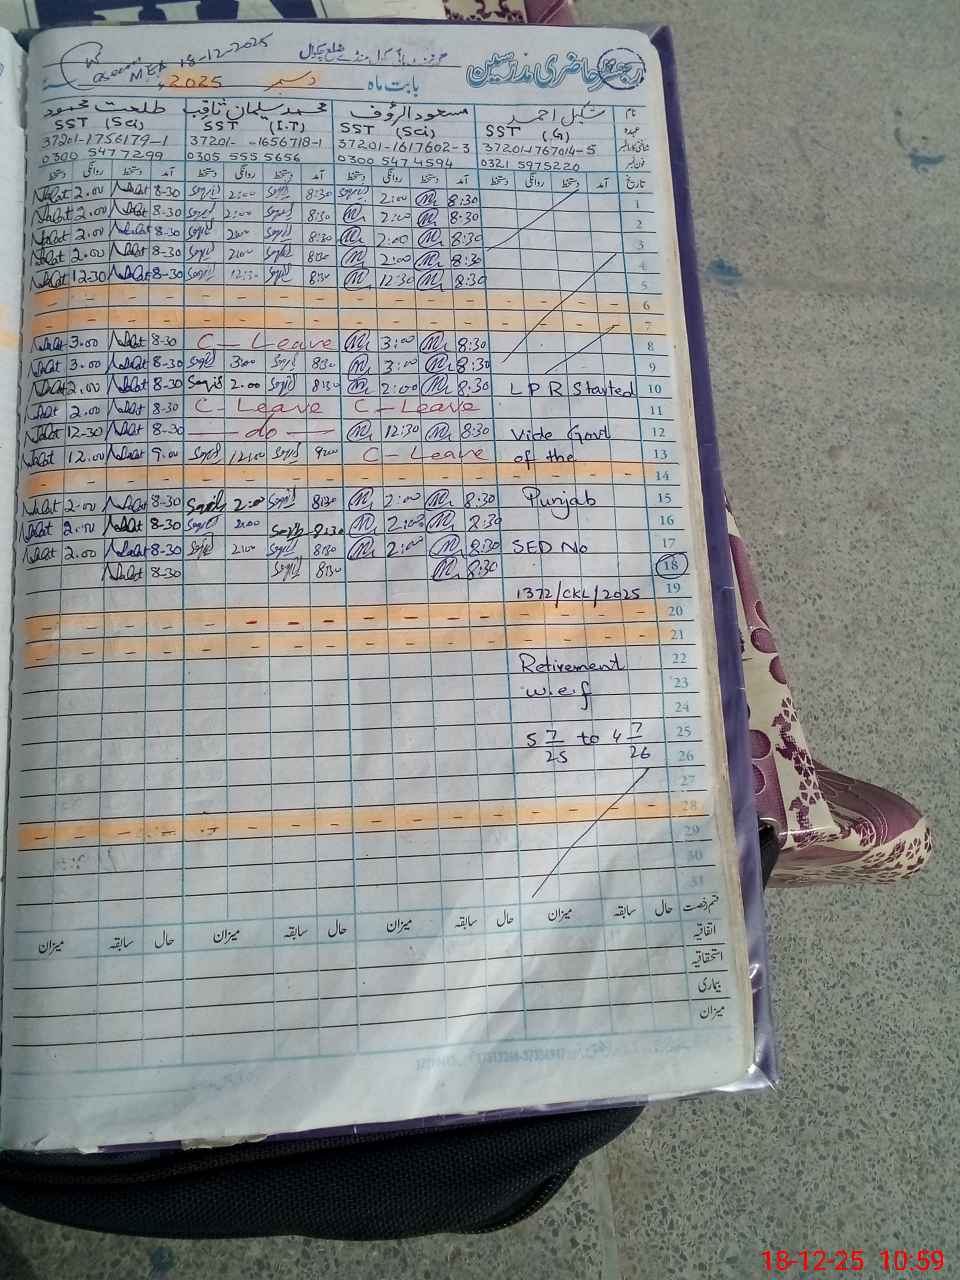 رجسٹر حاضری مدرسین
MEA 18-12-2025
بابت ماہ دسمبر 2025ء
نام شکیل احمد مسعود الرؤف محمد سلیمان ثاقب طلعت محمود
عہدہ SST (G) SST (Sci) SST (I.T) SST (Sci)
37201-1767014-5 37201-1617602-3 37201- -1656718-1 37201-1756179-1
فون نمبر 0321 5975220 0300 5474594 0305 555 5656 0300 547 7299
تاریخ آمد دستخط روانگی دستخط آمد دستخط روانگی دستخط آمد دستخط روانگی دستخط آمد دستخط روانگی دستخط
1 8:30 2:00 8:30 2:00 8-30 2.00
2 8:30 2:00 8:30 2:00 8-30 2.00
3 8:30 2:00 8:30 2:00 8-30 2.00
4 8:30 2:00 8:30 2:00 8-30 2.00
5 8:30 12:30 8:30 12:30 8-30 12-30
6 - - - - - - - - - - - - - - - -
7 - - - - - - - - - - - - - - - -
8 8:30 3:00 C - Leave 8-30 3.00
9 8:30 3:00 8:30 3:00 8-30 3.00
10 LPR Started 8:30 2:00 8:30 2.00 8-30 2.00
11 C - Leave C - Leave 8-30 2.00
12 Vide Govt 8:30 12:30 - do - 8-30 12-30
13 of the C - Leave 9:00 12:00 9.00 12.00
14 - - - - - - - - - - - - - - - -
15 Punjab 8:30 2:00 8:30 2:00 8-30 2-00
16 8:30 2:00 8:30 2:00 8-30 2.00
17 SED No 8:30 2:00 8:30 2:00 8-30 2.00
18 8:30 8:30 8-30
19 1372/CKL/2025
20 - - - - - - - - - - - - - - - -
21 - - - - - - - - - - - - - - - -
22 Retirement
23 w.e.f
24
25 5 7/25 to 4 7/26
26
27
28 - - - - - - - - - - - - - - - -
29
30
31
قسم رخصت حال سابقہ میزان حال سابقہ میزان حال سابقہ میزان حال سابقہ میزان
اتفاقیہ
استحقاقیہ
بیماری
میزان
18-12-25 10:59